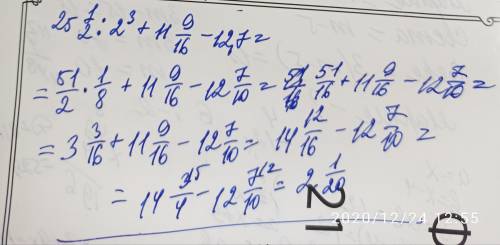 25 1/2 : 2³ + 11 9/16 - 12,7 =
= 51/2 · 1/8 + 11 9/16 - 12 7/10 = 51/16 + 11 9/16 - 12 7/10 =
= 3 3/16 + 11 9/16 - 12 7/10 = 14 12/16 - 12 7/10 =
= 14 3/4 - 12 7/10 = 2 1/20
21
2020/12/24 12:55